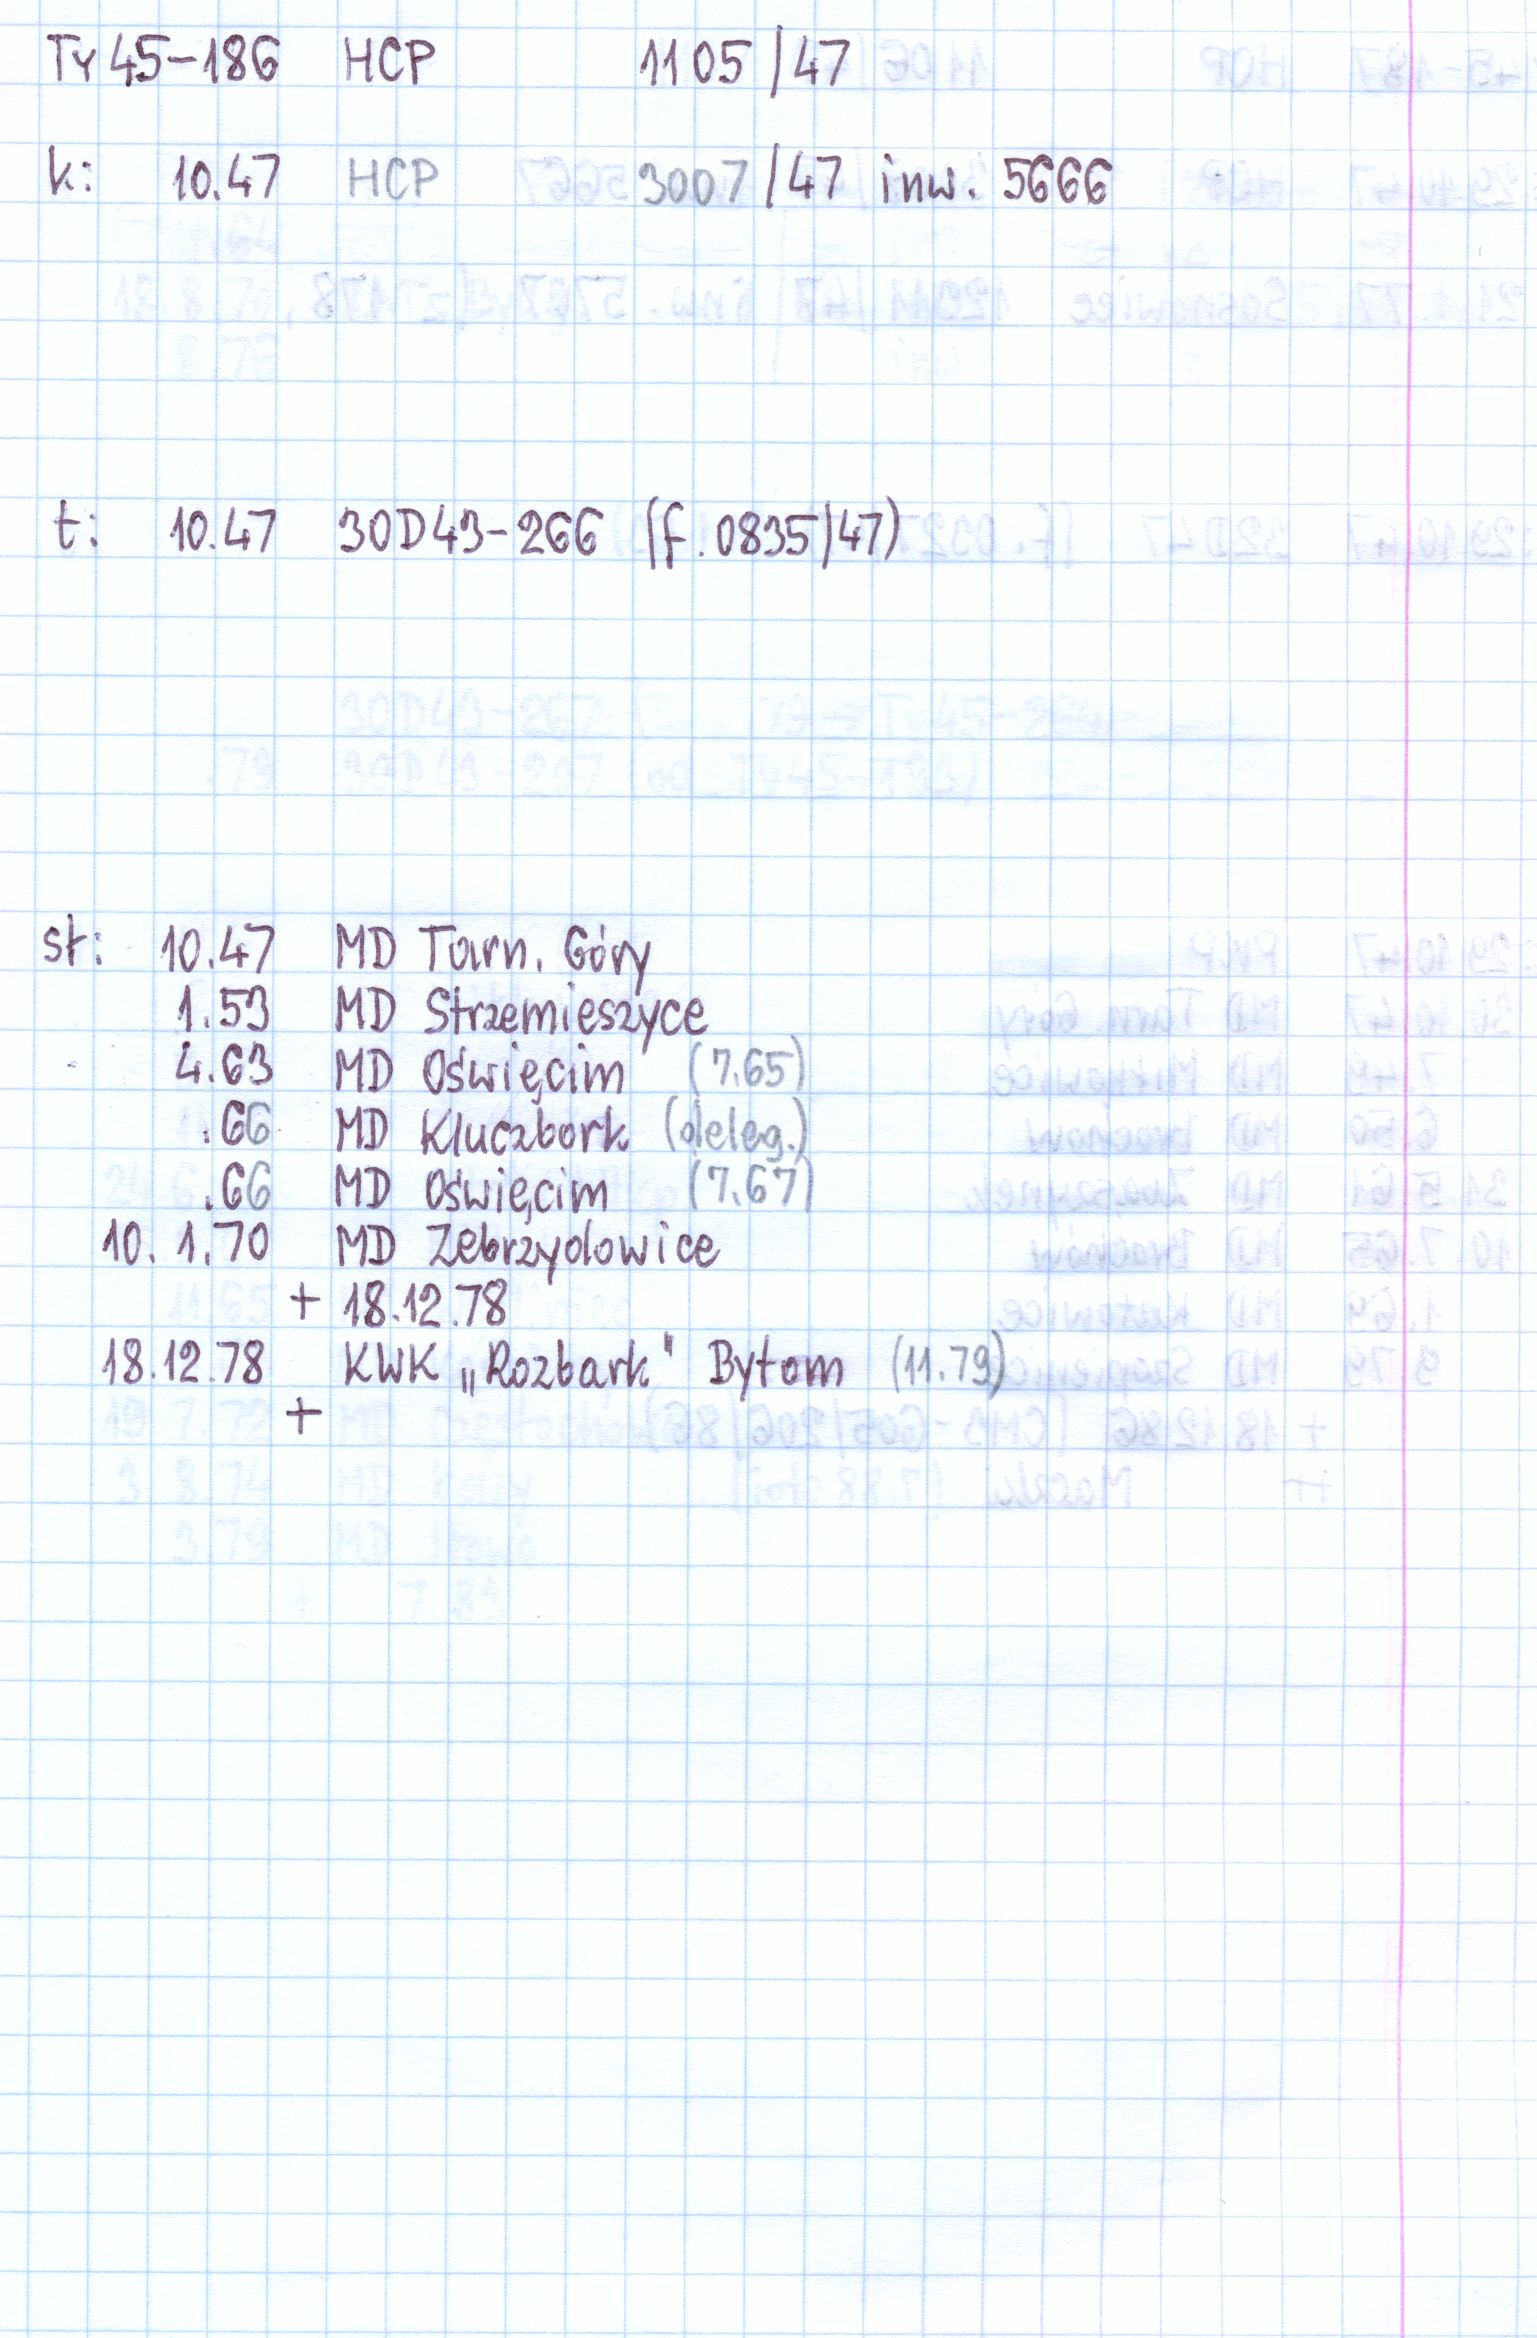 Ty 45-186 HCP 1105/47
k: 10.47 HCP 3007/47 inw. 5666
t: 10.47 30D43-266 (f. 0835/47)
st: 10.47 MD Tarn. Góry
1.53 MD Strzemieszyce
4.63 MD Oświęcim (7.65)
.66 MD Kluczbork (deleg.)
.66 MD Oświęcim (7.67)
10. 1.70 MD Zebrzydowice
+ 18.12.78
18.12.78 KWK „Rozbark" Bytom (11.79)
+